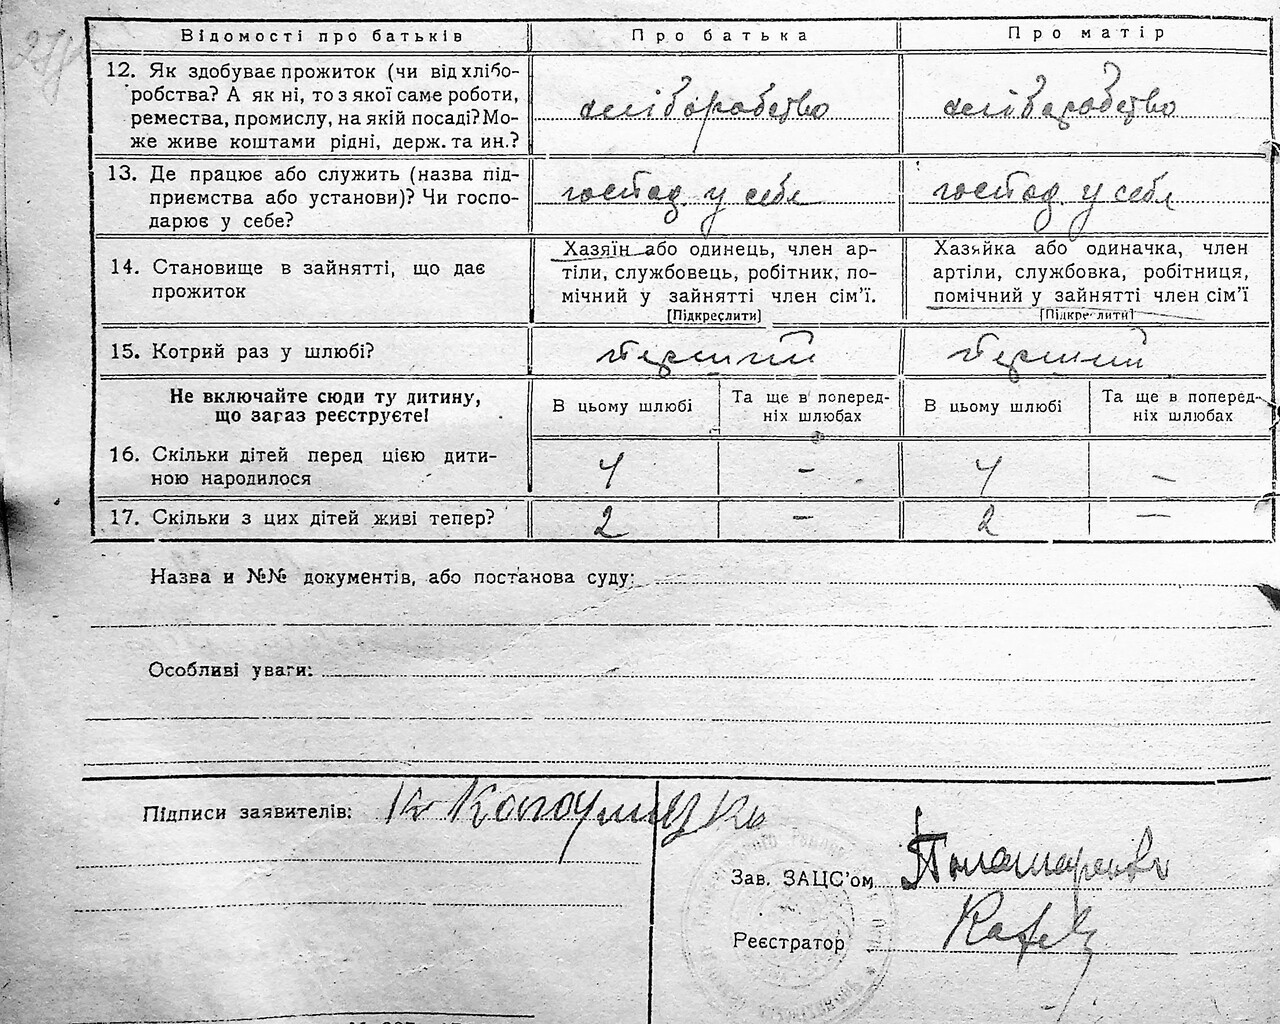 Відомості про батьків Про батька Про матір
12. Як здобуває прожиток (чи від хлібо-
робства? А як ні, то з якої саме роботи,
ремества, промислу, на якій посаді? Мо-
же живе коштами рідні, держ. та ин.?
хліборобство хліборобство
13. Де працює або служить (назва під-
приємства або установи)? Чи госпо-
дарює у себе?
господ у себе господ у себе
14. Становище в зайнятті, що дає
прожиток
Хазяїн або одинець, член ар-
тілі, службовець, робітник, по-
мічний у зайнятті член сім'ї.
[Підкреслити]
Хазяйка або одиначка, член
артілі, службовка, робітниця,
помічний у зайнятті член сім'ї
[Підкреслити]
15. Котрий раз у шлюбі? перший перший
Не включайте сюди ту дитину,
що зараз реєструєте!
В цьому шлюбі
Та ще в поперед-
ніх шлюбах
В цьому шлюбі
Та ще в поперед-
ніх шлюбах
16. Скільки дітей перед цією дити-
ною народилося
4 - 4 -
17. Скільки з цих дітей живі тепер? 2 - 2 -
Назва и №№ документів, або постанова суду:
Особливі уваги:
Підписи заявителів:
Зав. ЗАЦС'ом
Реєстратор